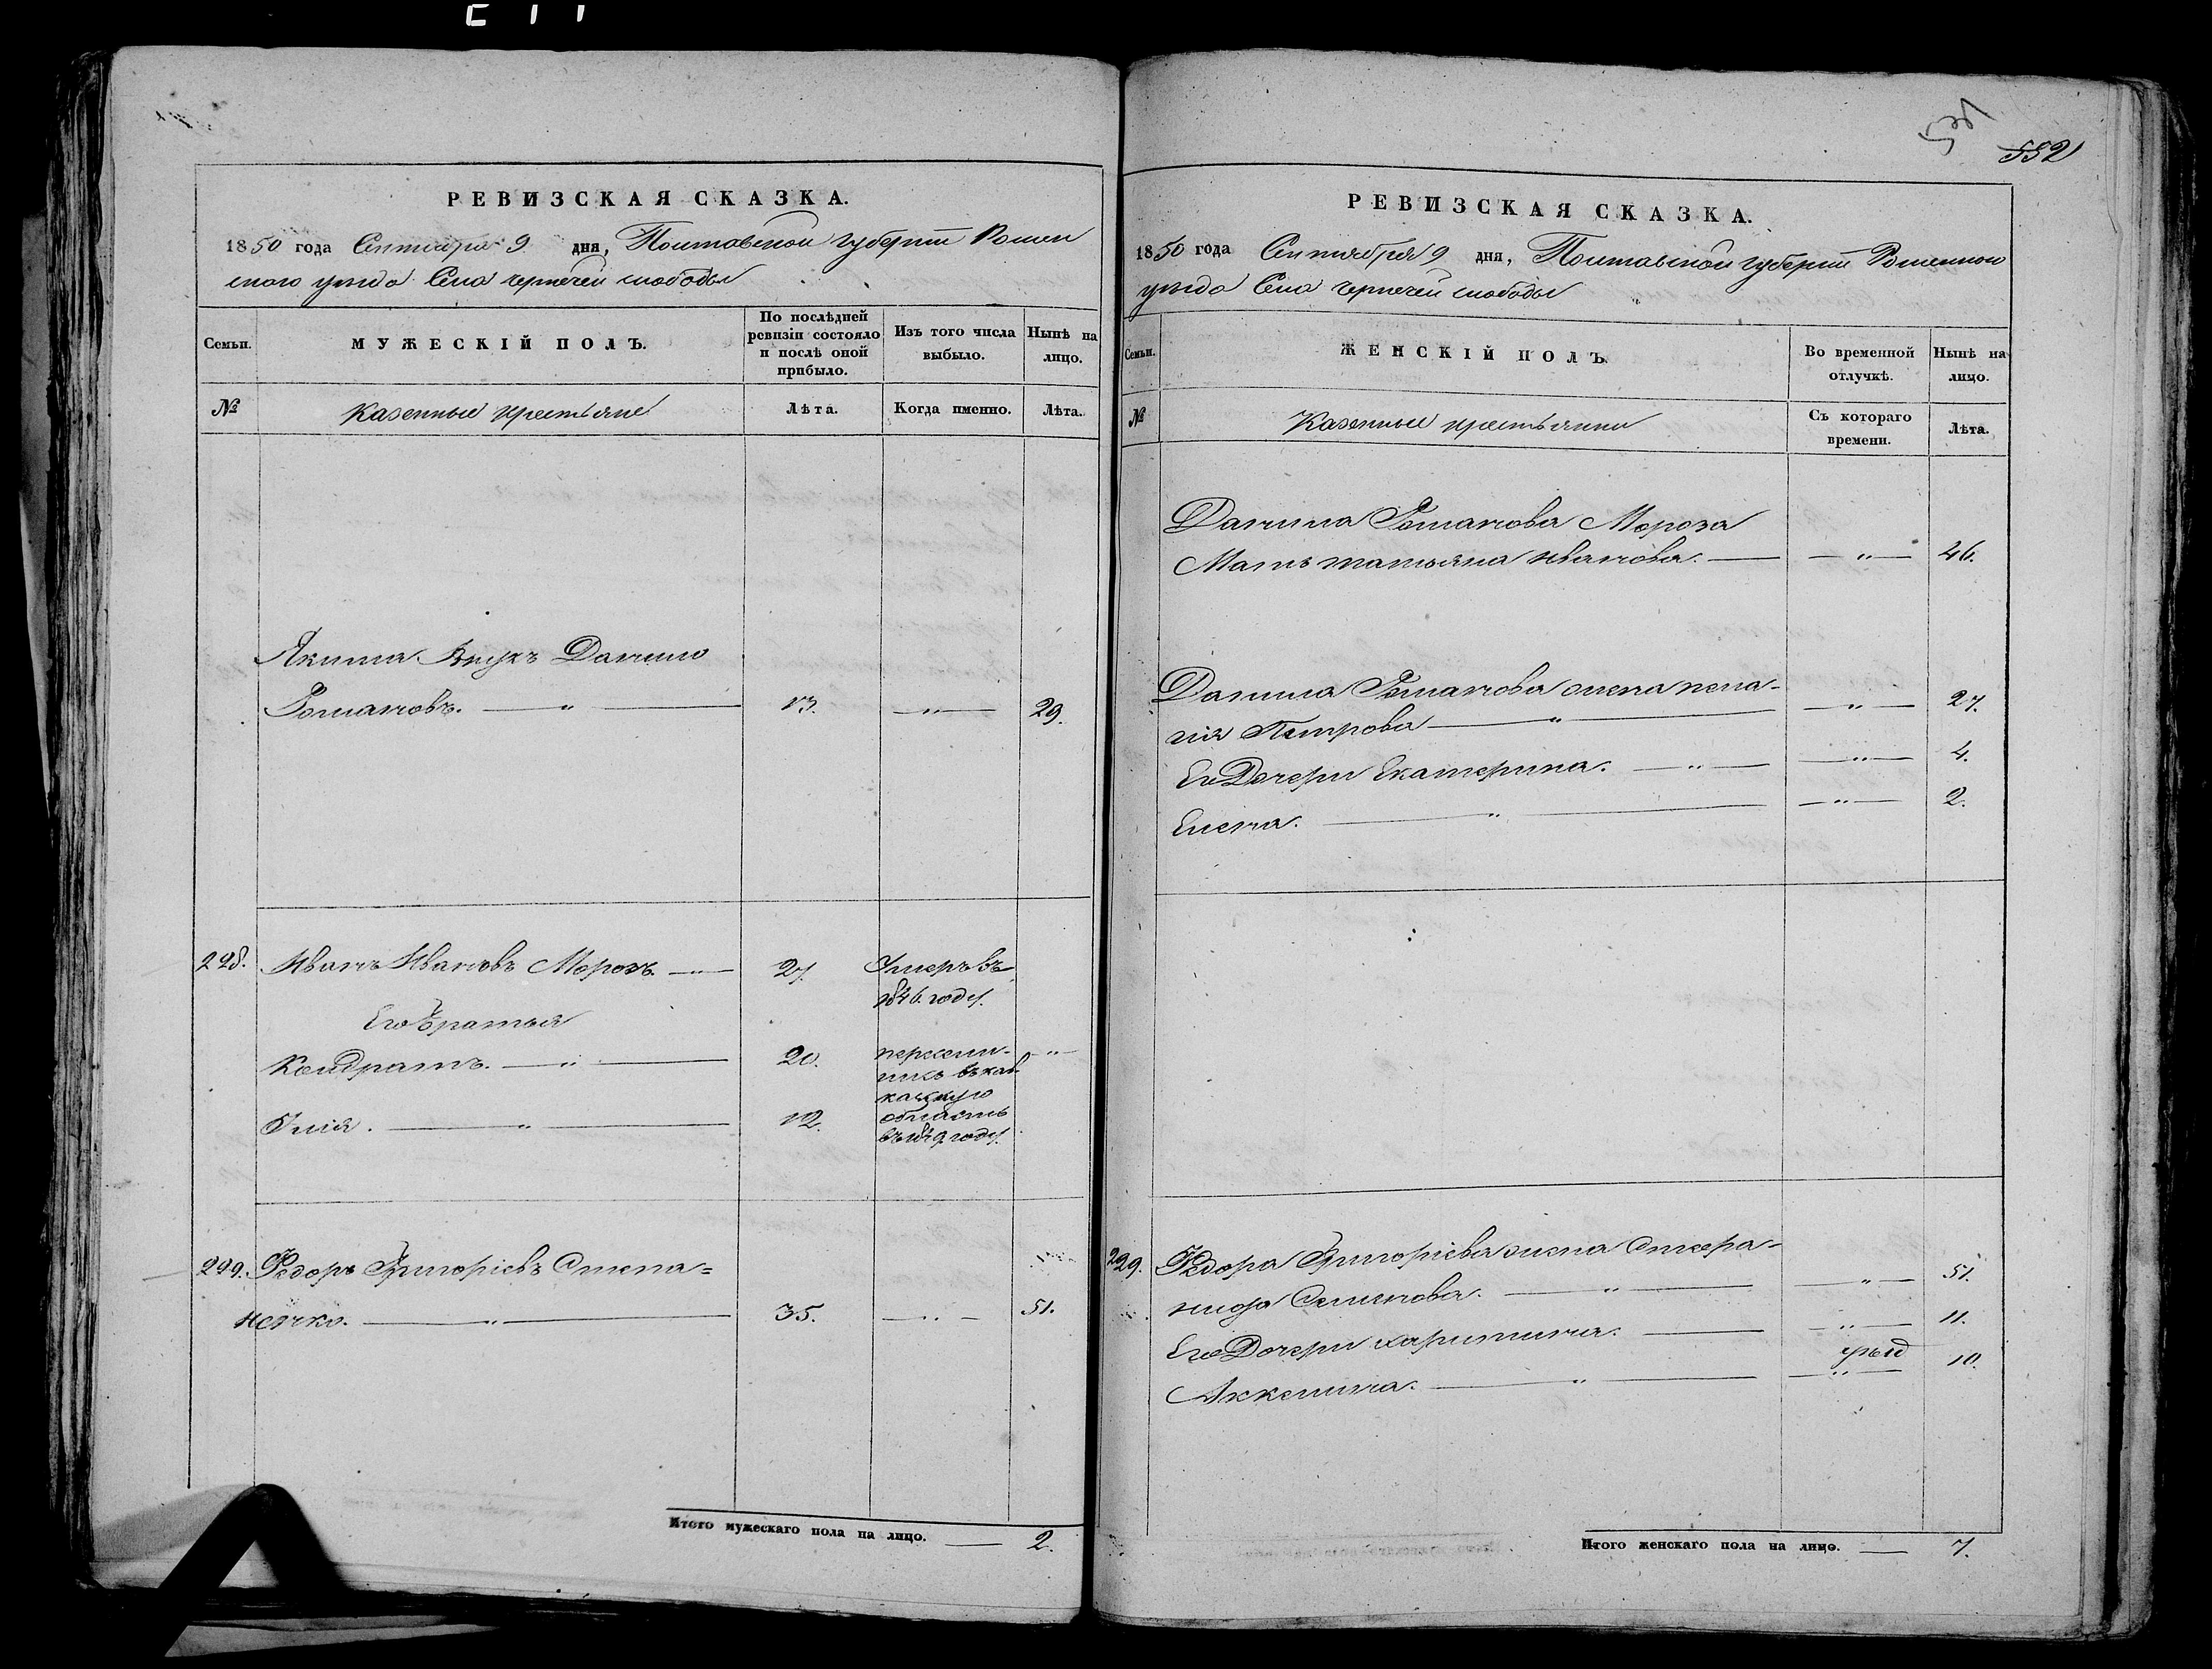 РЕВИЗСКАЯ СКАЗКА.
1850 года Сентября 9 дня, Полтавской губерніи Ромен
скаго уезда Села чернечей слободы
Семьи. МУЖЕСКІЙ ПОЛЪ. По послѣдней ревизіи состояло и послѣ оной прибыло. Изъ того числа выбыло. Нынѣ на лицо.
№ Казенные крестьяне Лѣта. Когда именно. Лѣта.
Якима Внукъ Данило
Романовъ. — " — 13. — " — 29.
228. Иванъ Ивановъ Морозъ. — " — 27. Умеръ въ
1846. году.
Его братья
Кондратъ. — " — 20. переели- — " —
нись въ кав
казкую
Илія. — " — 12. область
въ 1849 году.
229. Федоръ Григоріевъ Степа=
ненко. — " — 35. — " — 51.
Итого мужескаго пола на лицо. — 2.
552
РЕВИЗСКАЯ СКАЗКА.
1850 года Сентября 9 дня, Полтавской губерніи Роменского
уезда Села чернечей слободы
Семьи. ЖЕНСКІЙ ПОЛЪ. Во временной отлучкѣ. Нынѣ на лицо.
№ Казенные крестьянки Съ котораго времени. Лѣта.
Данила Романова Мороза
Мать татьяна иванова. — — " — 46.
Данила Романова жена пела-
гія Петрова — " — — " — 27.
Его Дочери Екатерина. — " — — " — 4.
Елена. — " — — " — 2.
229. Федора Григоріева жена Стефа-
нида Семинова. — " — — " — 51.
Его Дочери харитина. — — " — 11.
Акжелина. — " — — " — 10.
Итого женскаго пола на лицо. — 7.